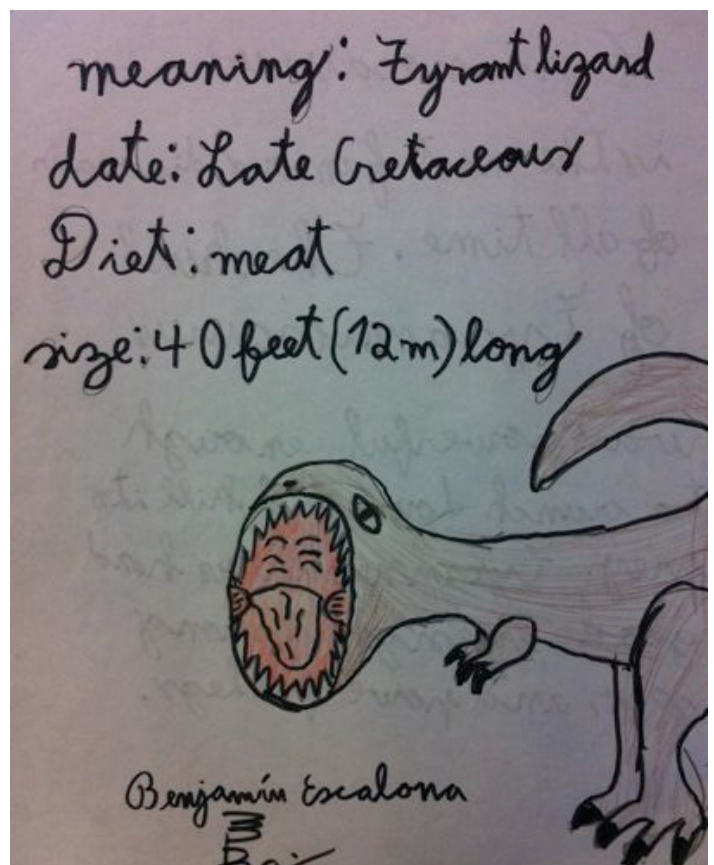 meaning: Tyrant lizard
date: Late Cretaceous
Diet: meat
size: 40 feet (12m) long
Benjamín Escalona